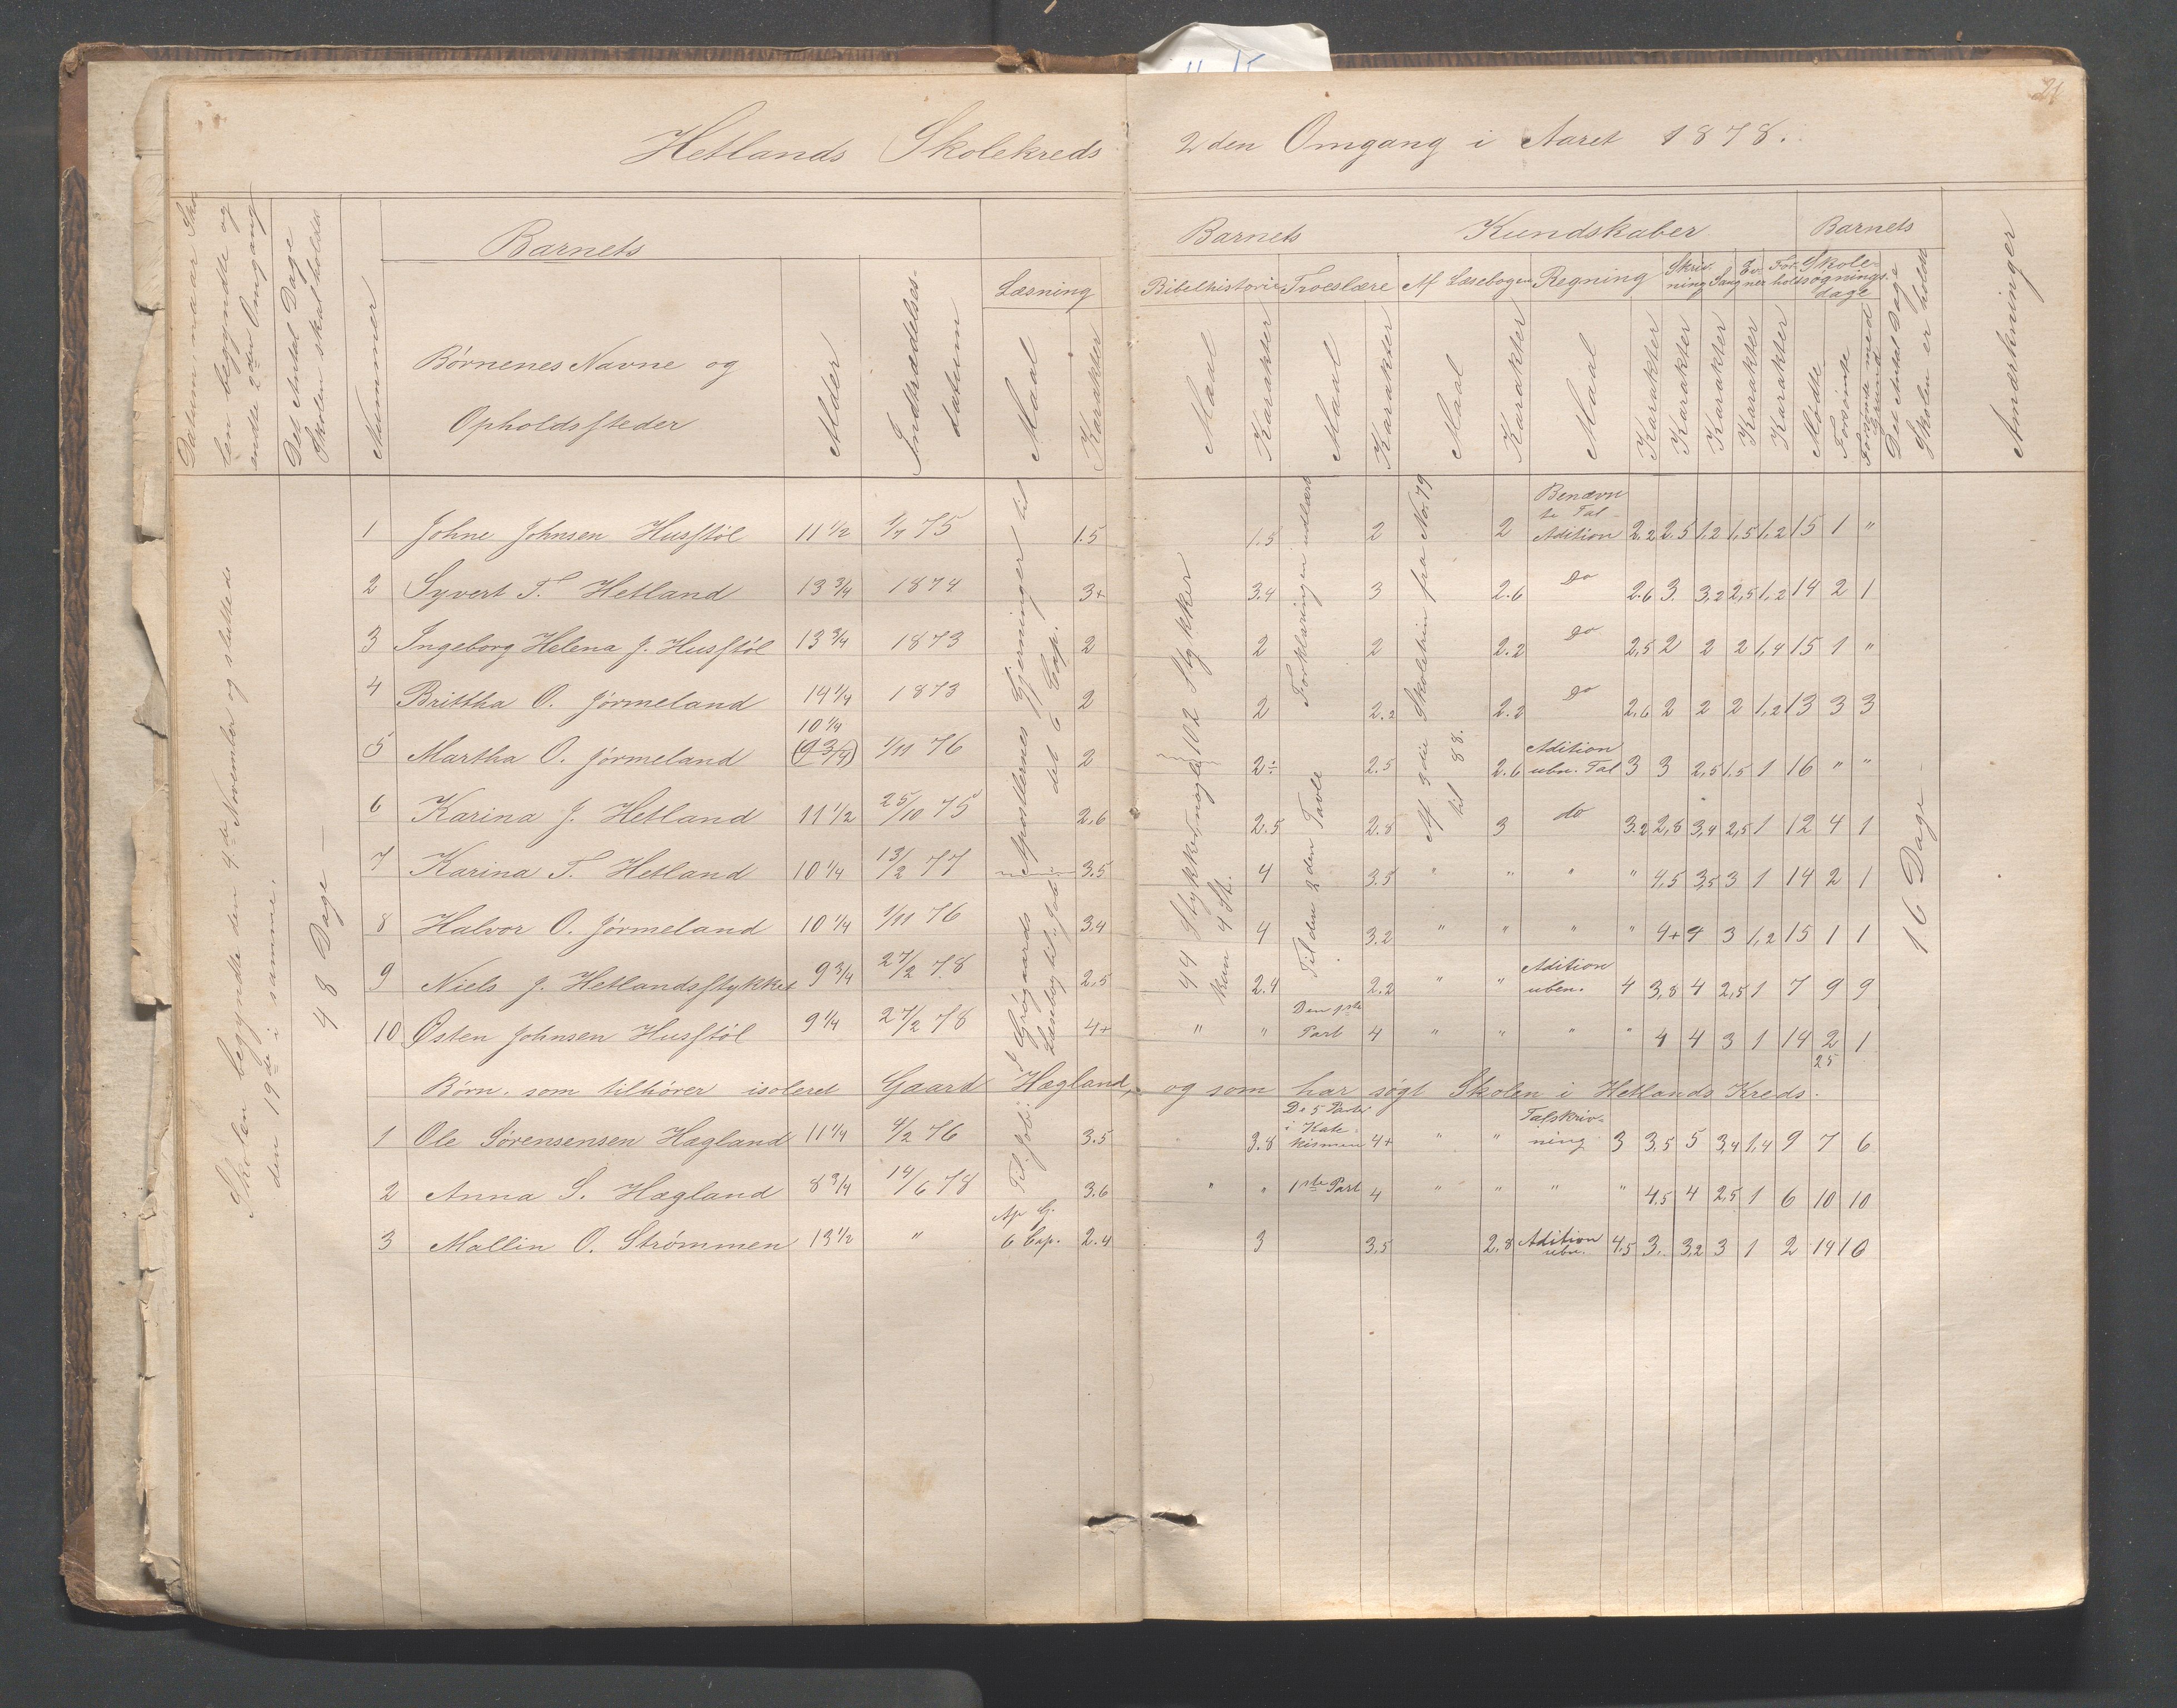 21
Hetlands Skolekreds 2den Omgang i Aaret 1878.
Datum naar Sko
len begyndte og
endte 2den Omgang
Det Antal Dage
Skolen skal holdes
Nummer
Barnets
Børnenes Navne og
Opholdssteder
Alder
Indtrædelses-
datum
Læsning
Maal
Karakter
Barnets Kundskaber
Bibelhistorie
Maal
Karakter
Troeslære
Maal
Karakter
Af Læsebogen
Maal
Karakter
Regning
Maal
Karakter
Skriv-
ning
Karakter
Sang
Karakter
Ev-
ner
Karakter
For-
hold
Karakter
Barnets
Skole-
søgnings-
dage
Mødte
Forsømte
Forsømte med
Grund
Det Antal Dage
Skolen er holdt
Anmærkninger
Skolen begyndte den 4de November og sluttede
den 19de i samme.
48 Dage
Apostlernes Gjerninger til
det 6 Cap.
102 Stykker
Forklaringen udlært
Af 3die Skoletrin fra No. 79
til 88.
16 Dage
1 Johne Johnsen Husstøl 11 1/2 1/7 75 1.5 1.5 2 2 Benævn
te Tal
Adition 2.2 2.5 1.2 1,5 1,2 15 1 "
2 Syvert T. Hetland 13 3/4 1874 3+ 3.4 3 2.6 Do 2.6 3. 3,2 2,5 1,2 14 2 1
3 Ingeborg Helena J. Husstøl 13 3/4 1873 2 2 2 2.2 Do 2,5 2 2 2 1,4 15 1 "
4 Brittha O. Jørmeland 14 1/4 1873 2 2 2.2 2.2 Do 2,6 2 2 2 1,2 13 3 3
10 1/4
5 Martha O. Jørmeland (9 3/4) 1/11 76 2 2÷ 2.5 2.6 Adition
ubn. Tal 3 3 2,5 1.5 1 16 " "
6 Karina J. Hetland 11 1/2 25/10 75 2,6 2.5 2.8 3 do 3.2 2,8 3,4 2,5 1 12 4 1
Til den 2den Tavle
44 Stykker
kun 4 St.
7 Karina T. Hetland 10 1/4 13/2 77 3.5 4 3.5 " " " " 4,5 3,5 3 1 14 2 1
8 Halvor O. Jørmeland 10 1/4 1/11 76 3.4 4 3.2 " " " " 4+ 4 3 1,2 15 1 1
9 Niels J. Hetlandsstykket 9 3/4 27/2 78 2,5 2.4 2.2 " " Adition
uben. 4 3,8 4 2,5 1 7 9 9
10 Østen Johnsen Husstøl 9 1/4 27/2 78 4+ " " Den 1ste
Part 4 " " " " 4 4 3 1 14 2 1
25
Børn. som tilhører isoleret Gaard Hægland, og som har søgt Skolen i Hetlands Kreds.
1 Ole Sørensensen Hægland 11 1/4 4/2 76 3.5 " 3.8 De 5 Parter
i Kate-
kismen 4+ " " Talskriv-
ning 3 3,5 5 3,4 1,4 9 7 6
2 Anna S. Hægland 8 3/4 14/6 78 3.6 " " 1ste Part 4 " " " " 4,5 4 2,5 1 6 10 10
3 Mallin O. Strømmen 13 1/2 " Ap G.
6 Cap. 2.4 3 3,5 2,8 Adition
ubn. 4,5 3. 3,2 3 1 2 14 10